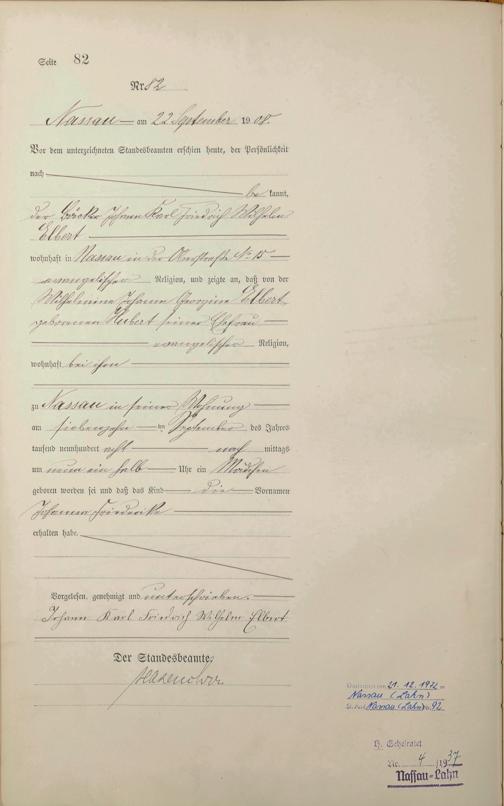 Seite 82
Nr. 82
Nassau am 22 September 1908.
Vor dem unterzeichneten Standesbeamten erschien heute, der Persönlichkeit
nach
be kannt,
der Bäcker Johann Karl Friedrich Wilhelm
Elbert
wohnhaft in Nassau in der Oberstraße No 15
evangelischer Religion, und zeigte an, daß von der
Wilhelmine Johanna Georgine Elbert,
geborenen Hubert seiner Ehefrau
evangelischer Religion,
wohnhaft bei ihm
zu Nassau in seiner Wohnung
am siebenzehn ten September des Jahres
tausend neunhundert acht nach mittags
um neun ein halb Uhr ein Mädchen
geboren worden sei und daß das Kind die Vornamen
Johanna Friederike
erhalten habe.
Vorgelesen, genehmigt und unterschrieben.
Johann Karl Friedrich Wilhelm Elbert
Der Standesbeamte.
am 21.12.1972 in
Nassau (Lahn)
Nassau (Lahn) 92
Geheiratet
Nr. 4 /1937
Nassau-Lahn